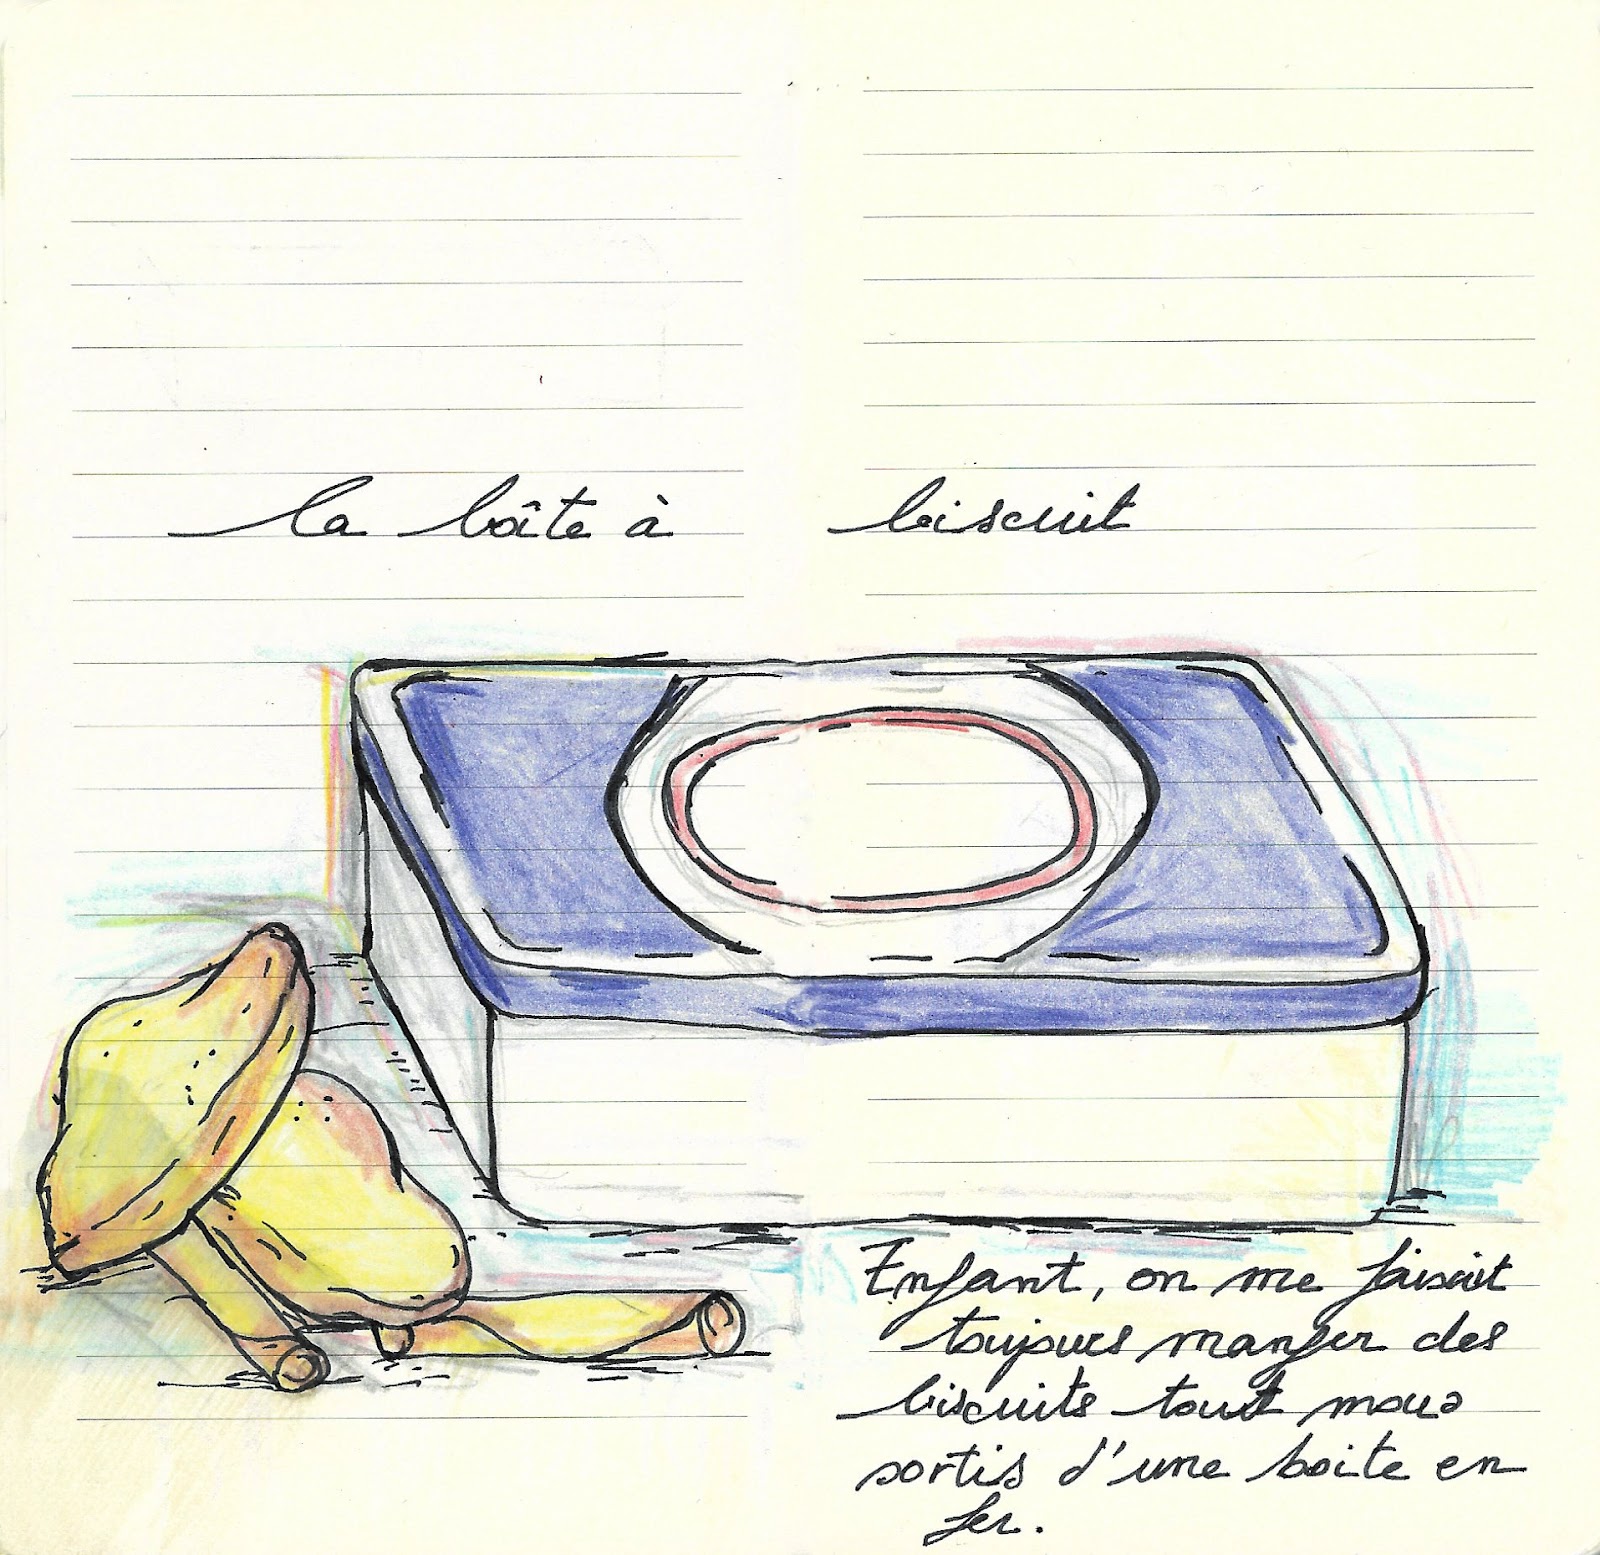 la boîte à biscuit
Enfant, on me faisait
toujours manger des
biscuits tout mous
sortis d'une boite en
fer.